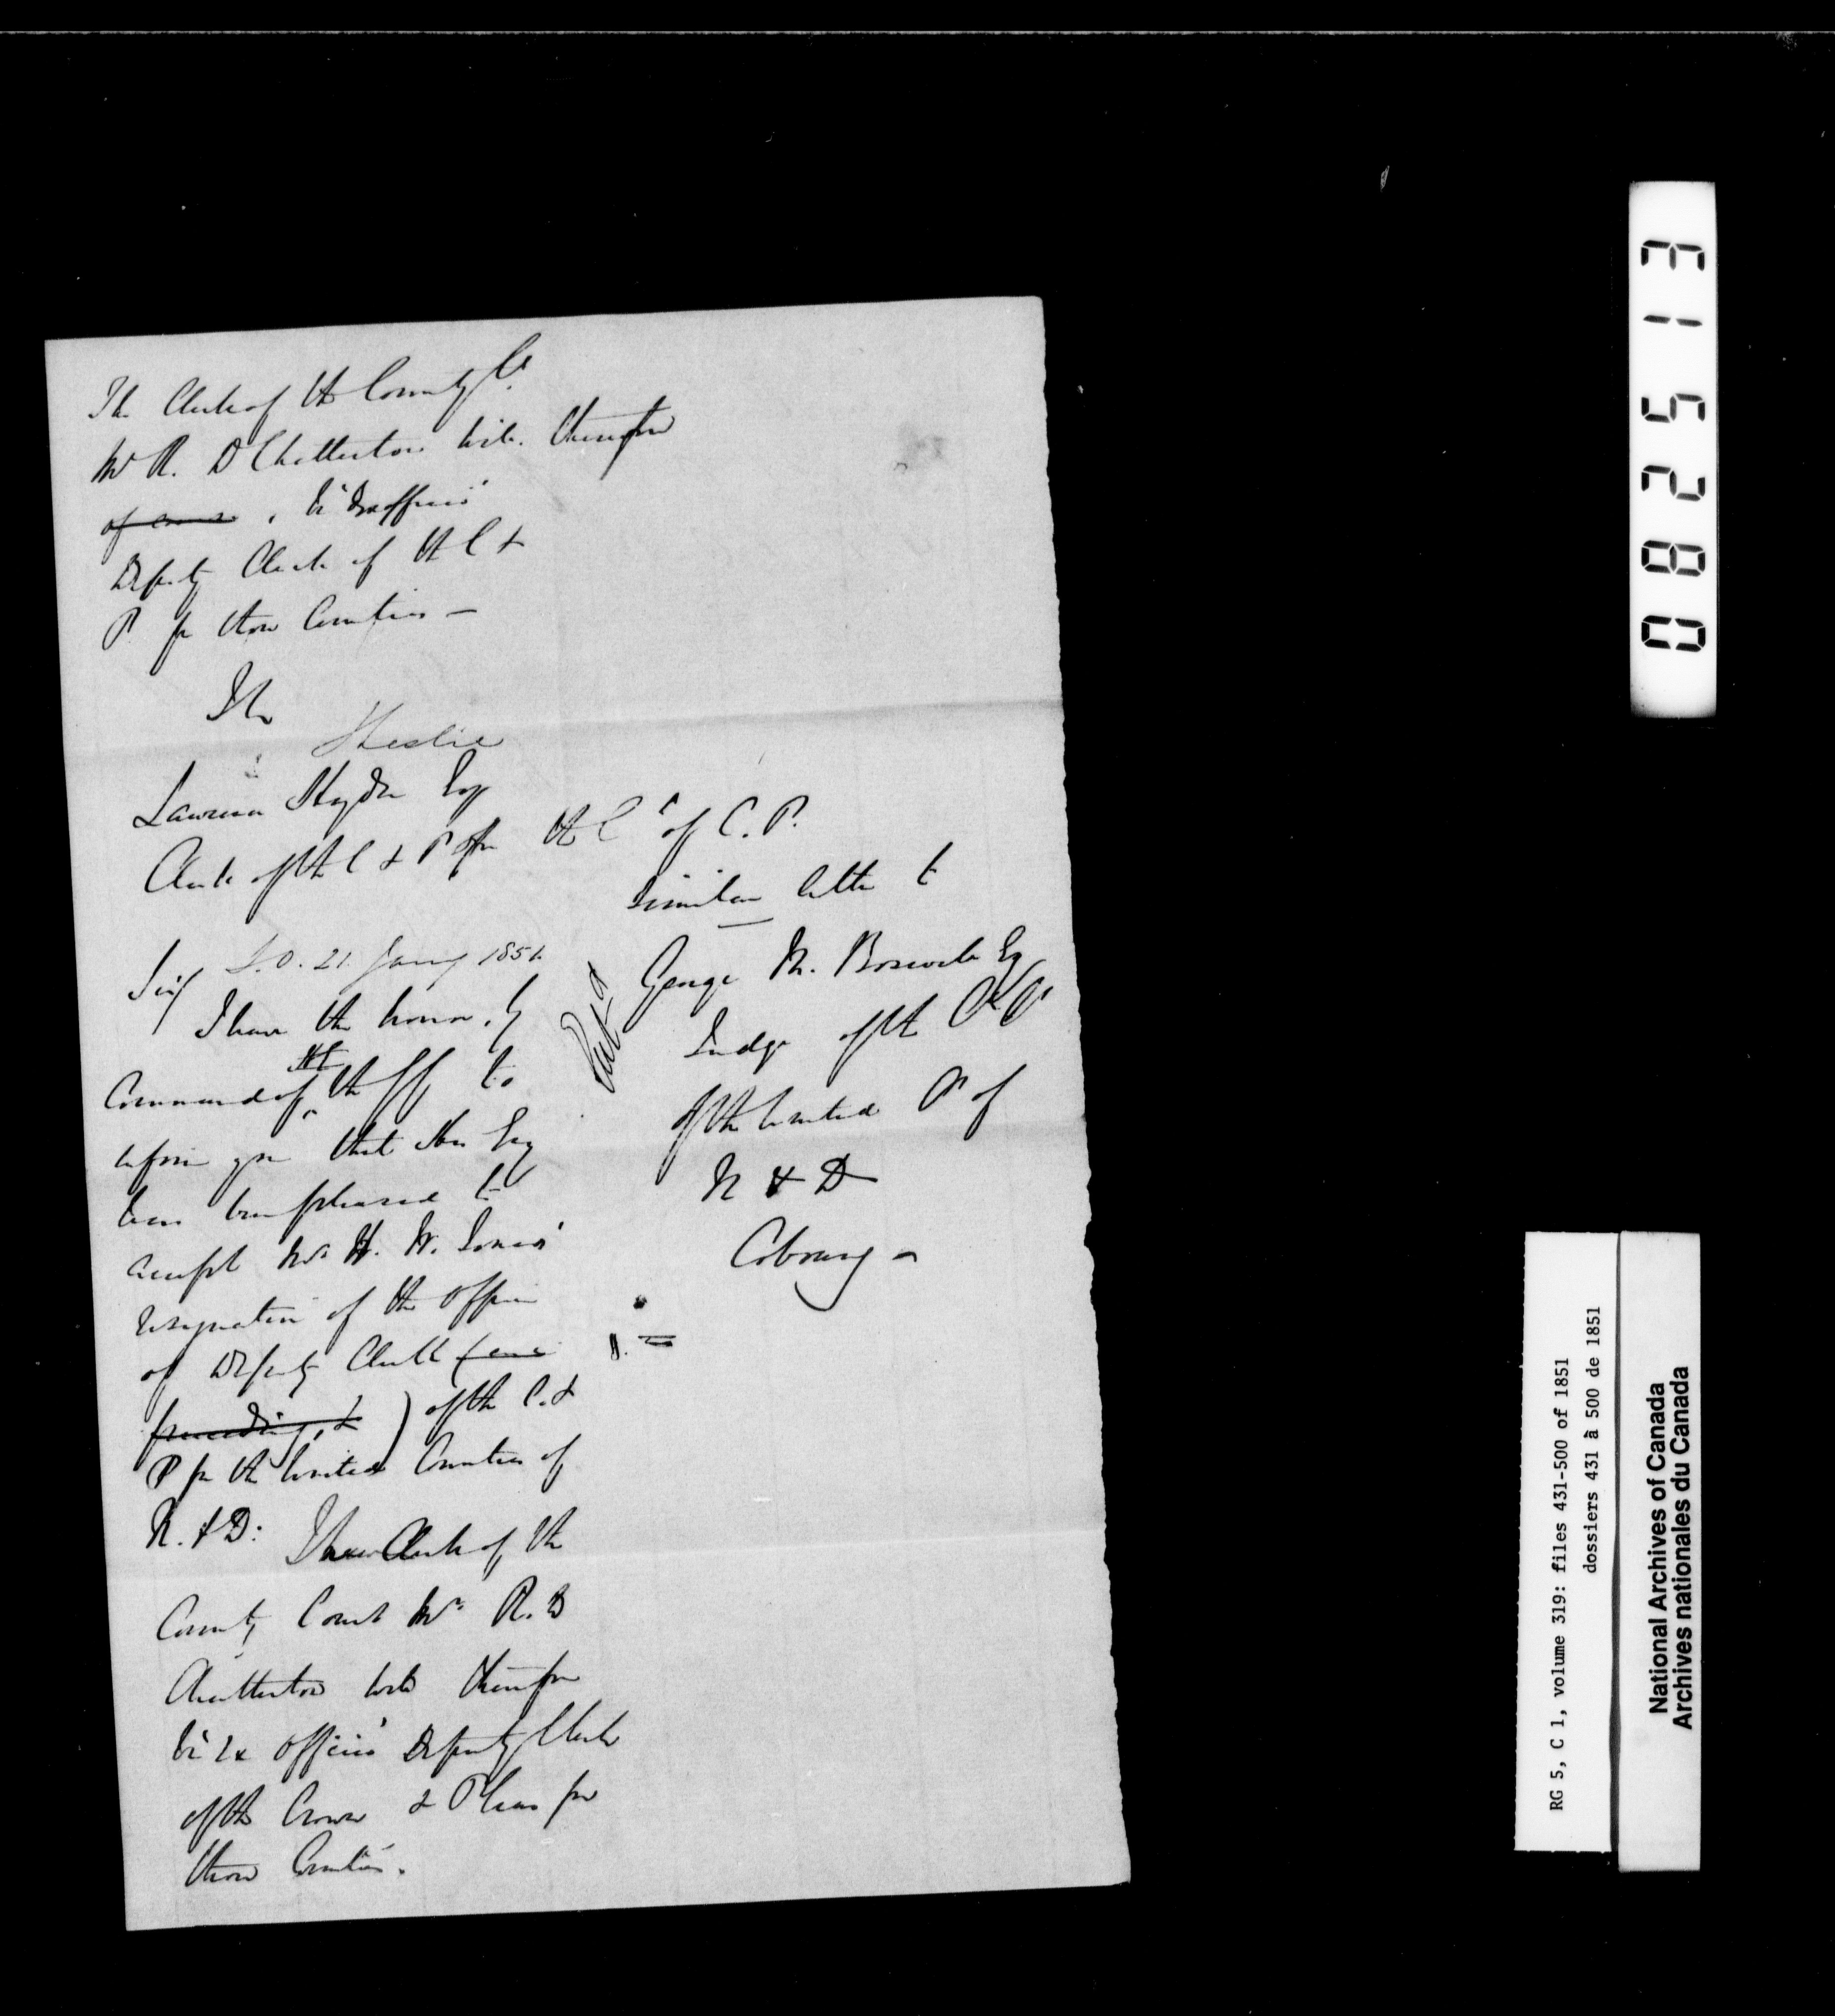 The Clerk of the County Ct
Mr R. D Chatterton will therefore
of course, be "Ex officio"
Deputy Clerk of the C &
P for those Counties —
JLeslie
Lawrence Heyden Esq
Clerk of the C & P of the Ct of C. P.
Sir S.O. 21 Jany 1851
I have the honor, by
Command of the
inform you that His Exy
has been pleased to
accept Mr H. Jones'
resignation of the Office
of Deputy Clerk
of the C. &
P for the United Counties of
N. & D: The Clerk of the
County Court Mr R. D
Chatterton will therefore
be "Ex officio" Deputy Clerk
of the Crown & Pleas for
those Counties.
Similar letter to
George M. Boswell Esq
Judge of the
of the United Cs of
N & D
Cobourg —
082513
RG 5, C 1, volume 319: files 431-500 of 1851
dossiers 431 à 500 de 1851
National Archives of Canada
Archives nationales du Canada